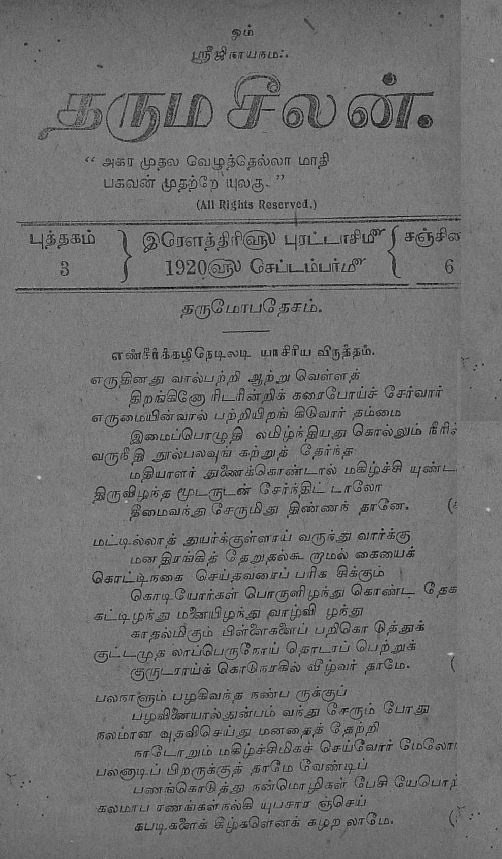 ஓம்
ஸ்ரீஜிநாயநம:.
தரும சீலன்.
“ அகர முதல வெழுத்தெல்லா மாதி
பகவன் முதற்றே யுலகு. ”
(All Rights Reserved.)
புத்தகம் 3
இரௌத்திரி௵ புரட்டாசிமீ
1920௵ செப்டம்பர்மீ
சஞ்சி 6
தருமோபதேசம்.
எண்சீர்க்கழிநெடிலடி யாசிரிய விருத்தம்.
எருதினது வால்பற்றி ஆற்று வெள்ளத்
திறங்கினோ ரிடரின்றிக் கரைபோய்ச் சேர்வார்
எருமையின்வால் பற்றியிறங் கிடுவார் தம்மை
இமைப்பொழுதி லமிழ்ந்தியது கொல்லும்
வருநீதி நூல்பலவுங் கற்றுத் தேர்ந்த
மதியாளர் துணைக்கொண்டால் மகிழ்ச்சி
திருவிழந்த மூடருடன் சேர்ந்திட் டாலோ
தீமைவந்து சேருமிது திண்ணந் தானே.
மட்டில்லாத் துயர்க்குள்ளாய் வருந்து வார்க்கு
மனதிரங்கித் தேறுதல்கூ றாமல் கையைக்
கொட்டிநகை செய்தவரைப் பரிக சிக்கும்
கொடியோர்கள் பொருளிழந்து கொண்ட
கட்டிழந்து மனையிழந்து வாழ்வி ழந்து
காதல்மிகும் பிள்ளைகளைப் பறிகொ டுத்துக்
குட்டமுத லாப்பெருநோய் தொடரப் பெற்றுக்
குருடராய்க் கொடுநரகில் வீழ்வர் தாமே.
பலநாளும் பழகிவந்த நண்ப ருக்குப்
பழவினையால்துன்பம் வந்து சேரும் போது
நலமான வுதவிசெய்து மனதைத் தேற்றி
நாடோறும் மகிழ்ச்சிமிகச் செய்வோர்
பலனடிப் பிறருக்குத் தாமே வேண்டிப்
பணங்கொடுத்து நன்மொழிகள் பேசி
கலமாப ரணங்கள்நல்கி யுபசார ஞ்செய்
கபடிகளைக் கீழ்களெனக் கழற லாமே.